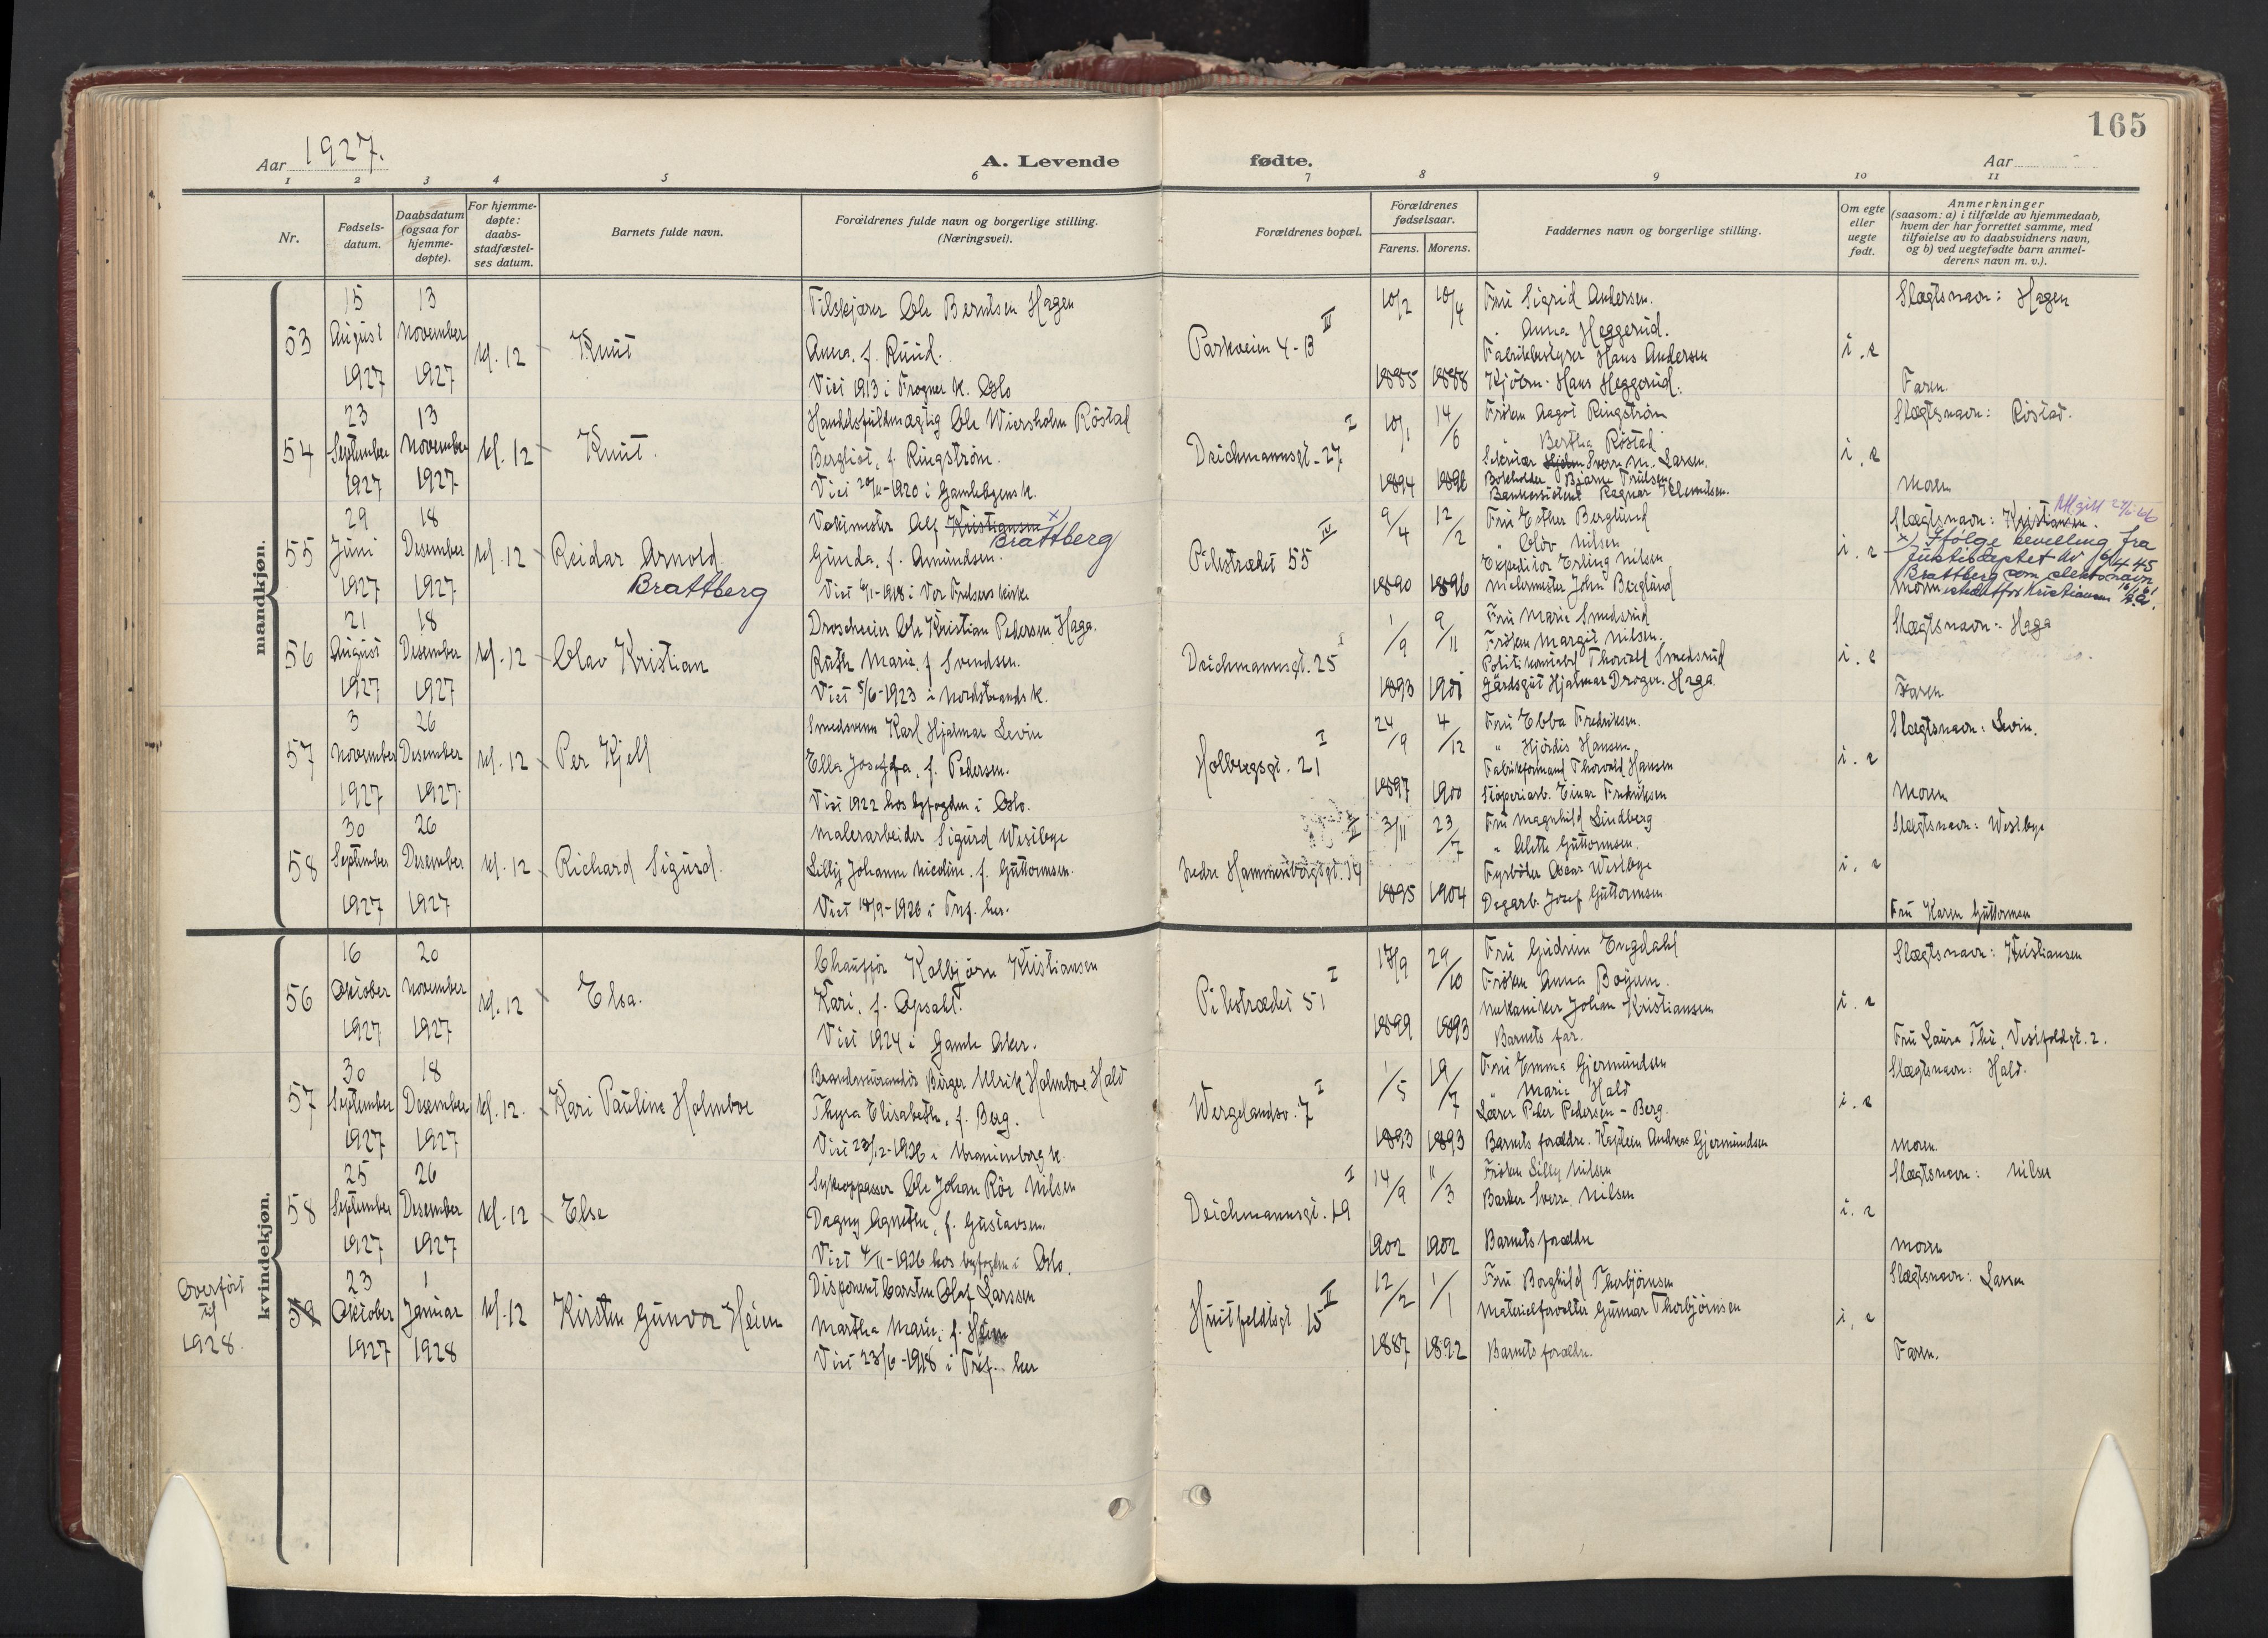 165
Aar 1927.
A. Levende
fødte.
Aar
1 2 3 4 5 6 7 8 9 10 11
Nr.
Fødsels-
datum.
Daabsdatum
(ogsaa for
hjemme-
døpte).
For hjemme-
døpte:
daabs-
stadfæstel-
ses datum.
Barnets fulde navn.
Forældrenes fulde navn og borgerlige stilling.
(Næringsvei).
Forældrenes bopæl.
Forældrenes
fødselsaar.
Farens. Morens.
Faddernes navn og borgerlige stilling.
Om egte
eller
uegte
født.
Anmerkninger
(saasom: a) i tilfælde av hjemmedaab,
hvem der har forrettet samme, med
tilføielse av to daabsvidners navn,
og b) ved uegtefødte barn anmel-
derens navn m. v.).
mandkjøn.
53
15
August
1927
13
November
1927
kl. 12
Knut
Ole Berntsen Hagen
Anna, f. Ruud.
Viet 1913 i Frogner k. Oslo
Parkveien 4-13 III
10/2 1885
10/4 1888
Fru Sigrid Andersen.
" Anna Heggerud.
Fabrikbestyrer Hans Andersen
Hans Heggerud.
i. e
Slægtsnavn: Hagen
Faren.
54
23
September
1927
13
November
1927
kl. 12
Knut.
Handelsfuldmægtig Ole Wiersholm Röstad
Bergliot, f. Ringström.
1920 i Gamlebyens k.
Deichmannsgt. 27 I
10/1 1894
14/6 1896
Fröken Aagot Ringström
" Bertha Röstad
Sverre M. Larsen.
Bokholder Bjarne
Bankassistent Ragnar
i. e
Slægtsnavn: Röstad.
Moren
55
29
Juni
1927
18
Desember
1927
kl. 12
Reidar Arnold.
Brattberg
Vaktmester Alf Kristiansen x)
Brattberg
Gunda, f. Amundsen.
Viet 6/1-1918 i Vor Frelsers kirke
Pilestrædet 55 IV
9/4 1890
12/2 1896
Fru Esther Berglund
" Olöv Nilsen
Expeditör Erling Nilsen
Malermester John Berglund
i. e
Slægtsnavn: Kristiansen.
x) Ifölge bevilling fra
Justisdeptet av
Brattberg som slektsnavn
istedetfor Kristiansen
Moren
56
21
August
1927
18
Desember
1927
kl. 12
Olav Kristian
Droscheeier Ole Kristian Pedersen Haga.
Ruth Marie, f. Svendsen.
Viet 5/6-1923 i Nordstrands k.
Deichmannsgt. 25 I
1/9 1893
9/11 1901
Fru Marie Smedsrud
Fröken Margit Nilsen.
Politikonstabel Thorvald Smedsrud
Gårdsgut Hjalmar Haga.
i. e
Slægtsnavn: Haga
Faren
57
3
November
1927
26
Desember
1927.
kl. 12
Per Kjell
Smedsvenn Karl Hjalmar Levin
Ella Josefa, f. Pedersen.
Viet 1922 hos byfogden i Oslo.
Holbergsgt. 21 I
24/9 1897
4/12 1900
Fru Ebba Fredriksen.
" Hjördis Hansen
Fabrikformand Thorvald Hansen
Stöperiarb. Einar Fredriksen
i. e
Slægtsnavn: Levin.
Moren
58
30
September
1927
26
Desember
1927
kl. 12
Richard Sigurd.
Malerarbeider Sigurd Westbye
Lilly Johanne Nicoline, f. Guttormsen.
Viet 18/9-1926 i Tref. her.
Nedre Hammersborggt. 14 II
3/11 1895
23/7 1904
Fru Magnhild Lindberg
" Alette Guttormsen.
Fyrböter Oscar Westbye
Dagarb. Josef Guttormsen
i. e
Slægtsnavn: Westbye
Fru Karen Guttormsen
kvindekjøn.
56
16
Oktober
1927
20
November
1927
kl. 12
Elsa.
Chauffør Kolbjörn Kristiansen
Kari, f. Opsahl.
Viet 1924 i Gamle Aker.
Pilestrædet 51 I
17/9 1899
29/10 1893
Fru Gudrun Engdahl
Fröken Anna Boyum.
Mekaniker Johan Kristiansen
Barnets far.
i. e
Slægtsnavn: Kristiansen
Fru Laura Thu, Vestfoldgt. 2.
57
30
September
1927
18
Desember
1927
kl. 12.
Kari Pauline Holmboe
Birger Ulrik Holmboe Hald
Thyra Elisabeth, f. Berg.
Viet 23/12-1926 i Uranienborg k.
Wergelandsv. 7 I
1/5 1893
19/7 1893
Fru Emma Gjermundsen
" Marie Hald
Lærer Peter Pedersen-Berg.
Barnets forældre. Kaptein Andreas Gjermundsen
i. e
Slægtsnavn: Hald.
Moren.
58
25
September
1927
26
Desember
1927
kl. 12
Else
Sykepasser Ole Johan Röe Nilsen
Dagny Agnethe, f. Gustavsen.
Viet 4/11-1926 hos byfogden i Oslo.
Deichmannsgt. 19 I
14/9 1902
11/3 1902
Fröken Lilly Nilsen
Barber Sverre Nilsen
Barnets forældre
i. e
Slægtsnavn: Nilsen
Moren
Overfört
til
1928.
59
23
Oktober
1927
1
Januar
1928
kl. 12
Kirsten Gunvor Heien
Disponent Carsten Olaf Larssen
Martha Marie, f. Heien
Viet 23/6-1918 i Tref. her
Huitfeldtsgt 15 II
12/2 1887
1/1 1892
Fru Borghild Thorbjörnsen
Materialforvalter Gunnar Thorbjörnsen
Barnets forældre.
i. e
Slægtsnavn: Larsen
Faren.